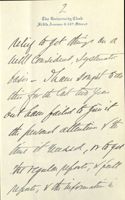 2
The University Club
Fifth Avenue & 54th Street
relief to get things on a
well considered, systematic
basis. I have sought to do
this for the last two years
but have failed to give it
the personal attention & the
time it needed, or to get
the regular reports, &
reports, & the information to